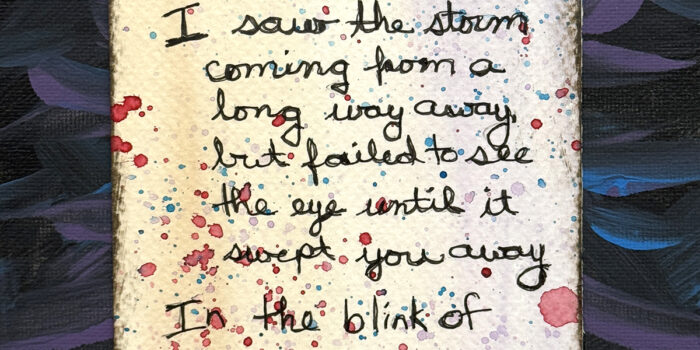 I saw the storm
coming from a
long way away,
but failed to see
the eye until it
swept you away
In the blink of